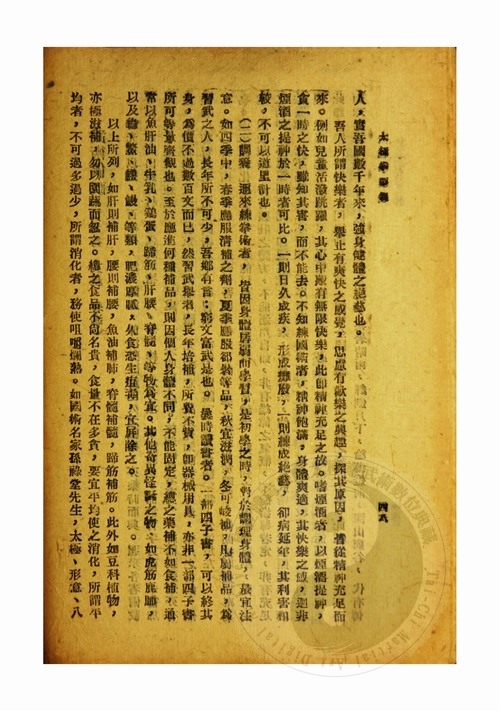 人，實吾國數千年來，強身健體之絕藝也。
吾人所謂快樂者，舉止有爽快之感覺，思慮有歡樂之興趣，探其原因，皆從精神充足而
來。例如兒童活潑跳躍，其心中嚴有無限快樂，此即精神充足之故。嗜煙酒者，以煙酒提神，
貪一時之快，雖知其害，而不能去。不知練國術者，精神飽滿，身體爽適，其快樂之感，迥非
煙酒之提神於一時者可比。一則日久成疾，形成攤廢，一則練成絕藝，卻病延年，其利害相
較，不可以道里計也。
（二）調養 邇來練拳術者，皆因身體居弱而學習，是初學之時，對於調理身體，最宜注
意。如四季中，春季應服清補之劑，夏季應服卻暑等品，秋宜滋潤，冬可峻補，但屬補品，為
習武之人，長年所不可少，吾鄉有言：窮文富武是也。曩時讀書者。一部四子書，可以終其
身，為價不過數百文而已，然習武學者，長年培補，所費不貲，即器械用具，亦非一部四子書
所可等量齊觀也。至於應進何種補品，則因個人身體不同，不能固定，總之藥補不如食補，通
常以魚肝油、牛乳、鷄蛋、蹄筋、肝腰、脊髓、等物為宜。其他奇異怪誕之物，如虎筋鹿脯，
以及 、鱉、 、鰻、等類，肥濃膩滯，久食恐生痰濁，宜屏除之。
以上所列，如肝則補肝，腰則補腰，魚油補肺，脊髓補髓，蹄筋補筋。此外如豆科植物，
亦極滋補，勿以園蔬而忽之。總之食品不尚名貴，食量不在多貪，要宜平均使之消化，所謂平
均者，不可過多過少，所謂消化者，務使咀嚼爛熟。如國術名家孫祿堂先生，太極、形意、八
四八